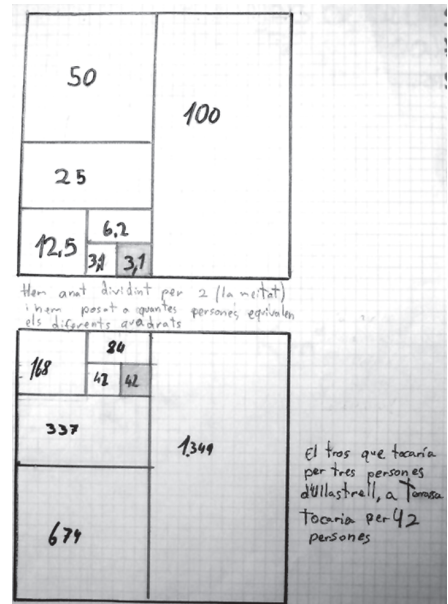 50
100
25
6,2
12,5
3,1
3,1
Hem anat dividint per 2 (la meitat)
i hem posat a quantes persones equivalen
els diferents quadrats
84
168
42
42
337
1.349
674
El tros que tocaria
per tres persones
d'Ullastrell, a Terrassa
tocaria per 42
persones